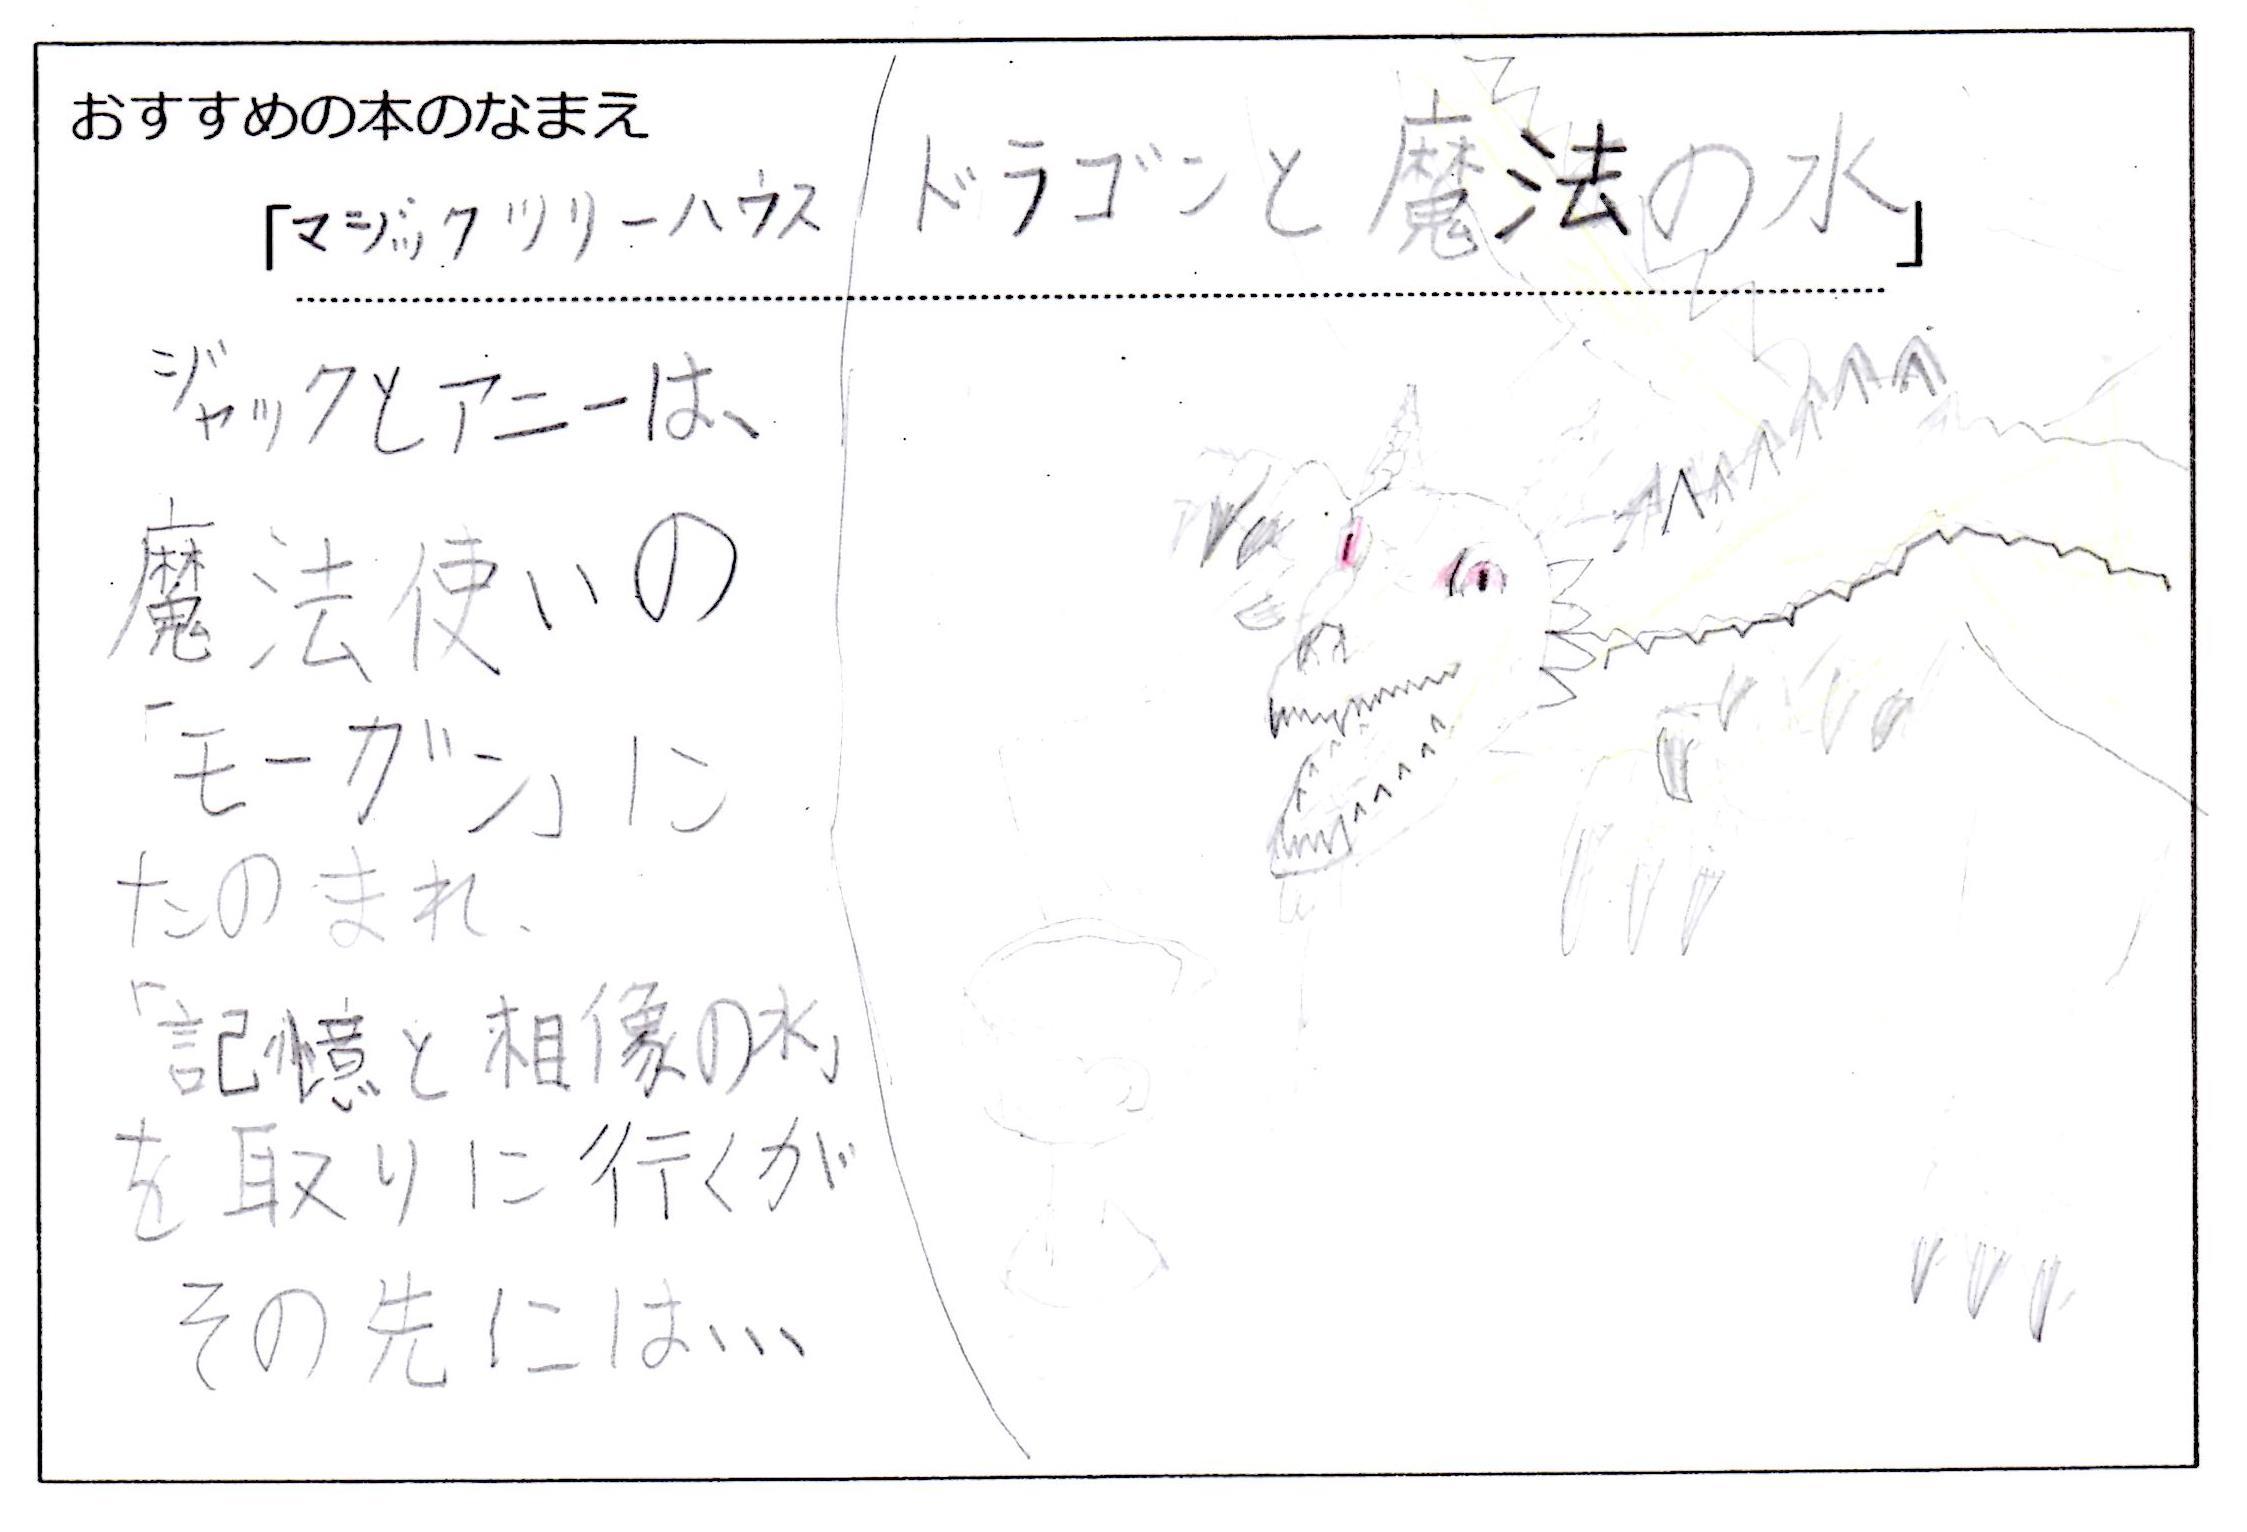 おすすめの本のなまえ
「マジックツリーハウス ドラゴンと魔法の水」
ジャックとアニーは、
魔法使いの
「モーガン」に
たのまれ、
「記憶と相像の水」
を取りに行くが
その先には...